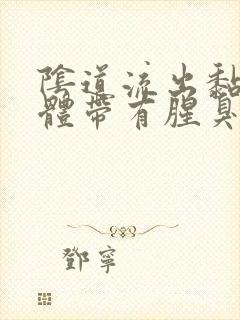 陰道流出黏
體帶有腥臭
鄧寧